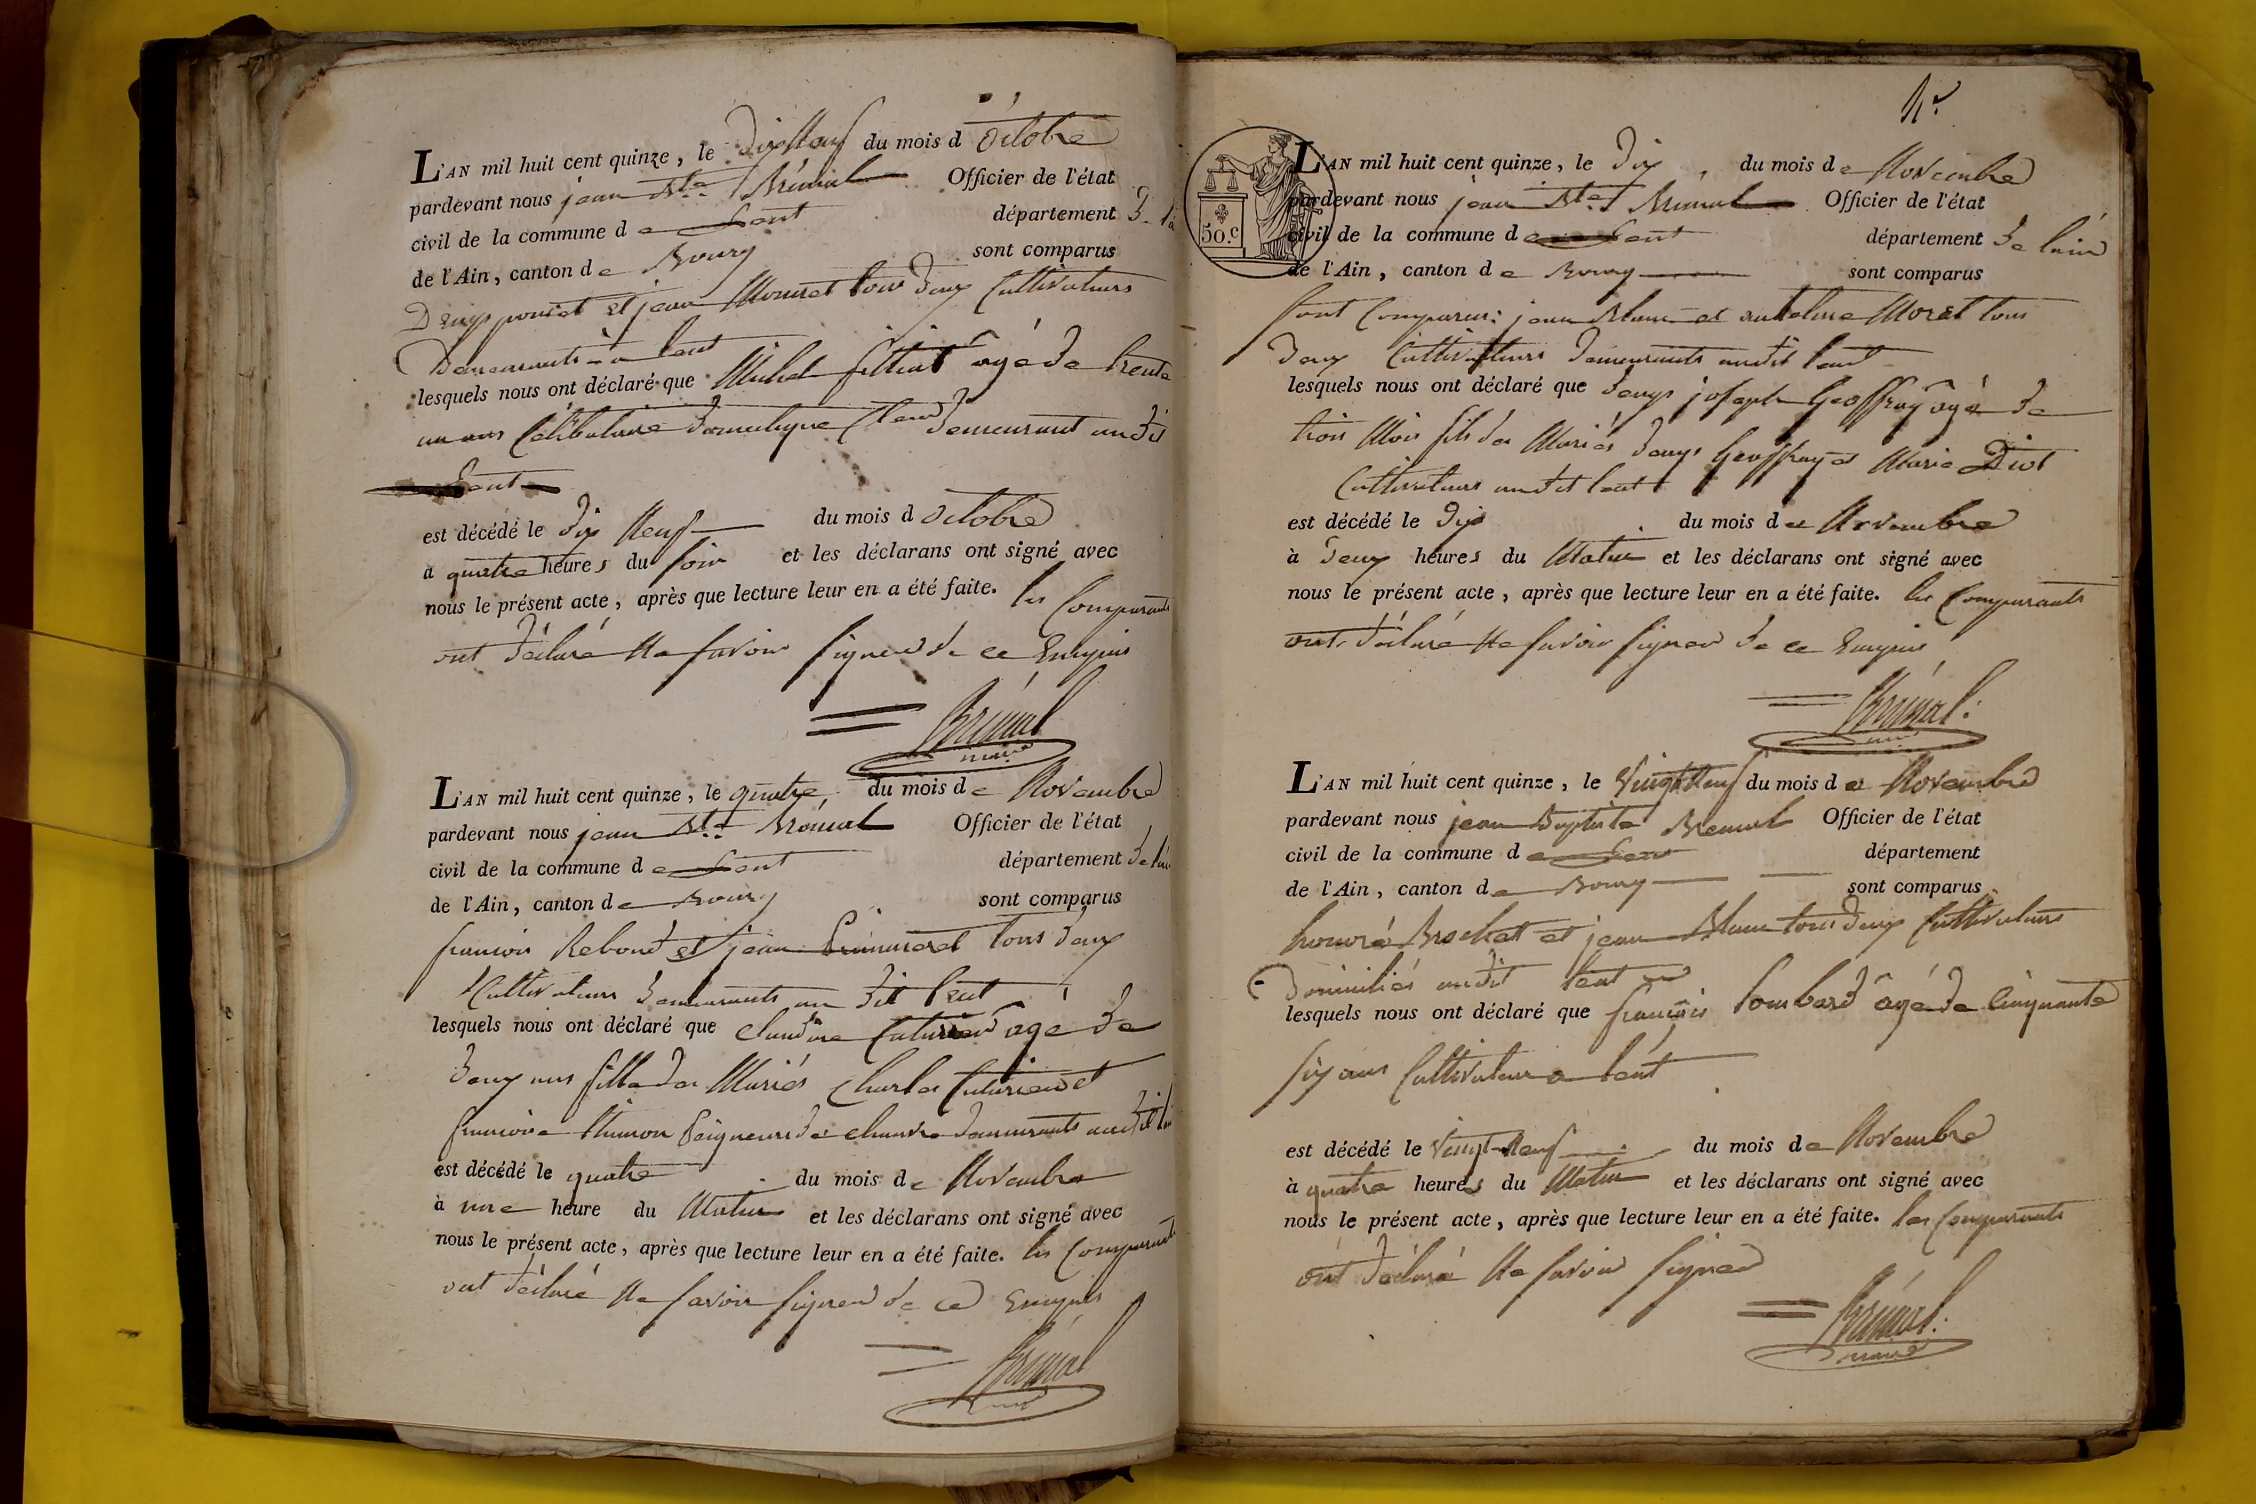 L'AN mil huit cent quinze, le dix Neuf du mois d Octobre
pardevant nous jean Bte Brémal Officier de l'état
civil de la commune de Lent département De l'a
de l'Ain, canton de Bourg sont comparus
Denys poncet et jean Monnet tous deux Cultivateurs
Demeurants à Lent
lesquels nous ont déclaré que Michel âgé de trente
un ans Célibataire Domestique demeurant au dit
Lent
est décédé le dix Neuf du mois d Octobre
à quatre heures du soir et les déclarans ont signé avec
nous le présent acte, après que lecture leur en a été faite. les Comparants
ont déclaré Ne savoir signer de ce Enquis
Brémal
maire
L'AN mil huit cent quinze, le quatre du mois de Novembre
pardevant nous jean Bte Brémal Officier de l'état
civil de la commune de Lent département de l'ai
de l'Ain, canton de Bourg sont comparus
francois Rebond et jean tous deux
Cultivateurs demeurants au dit Lent
lesquels nous ont déclaré que claudine âgé de
deux ans fille des Mariés Charles et
francoise Peigneur de chanvre demeurants au dit
est décédé le quatre du mois de Novembre
à une heure du Matin et les déclarans ont signé avec
nous le présent acte, après que lecture leur en a été faite. les Comparants
ont déclaré Ne savoir signer de ce Enquis
Brémal
maire
50.c
L'AN mil huit cent quinze, le Dix du mois de Novembre
pardevant nous jean Bte Brémal Officier de l'état
civil de la commune de Lent département De lain
de l'Ain, canton de Bourg sont comparus
Sont Comparus: jean Blanc et anthelme Moret tous
deux Cultivateurs Demeurants audit Lent
lesquels nous ont déclaré que denys joseph Geoffray âgé de
trois Mois fils des Mariés denys Geoffray et Marie Diot
Cultivateurs audit Lent
est décédé le Dix du mois de Novembre
à Deux heures du Matin et les déclarans ont signé avec
nous le présent acte, après que lecture leur en a été faite. les Comparants
ont déclaré Ne savoir signer de ce Enquis
Brémal
maire
L'AN mil huit cent quinze, le Vingt Neuf du mois de Novembre
pardevant nous jean Baptiste Brémal Officier de l'état
civil de la commune de Lent département
de l'Ain, canton de Bourg sont comparus
honoré Brochet et jean Blanc tous deux Cultivateurs
Domiciliés audit Lent
lesquels nous ont déclaré que françois Lombard âgé de Cinquante
six ans Cultivateur a Lent
est décédé le Vingt Neuf du mois de Novembre
à quatre heures du Matin et les déclarans ont signé avec
nous le présent acte, après que lecture leur en a été faite. les Comparants
ont déclaré Ne savoir signer
Brémal
maire